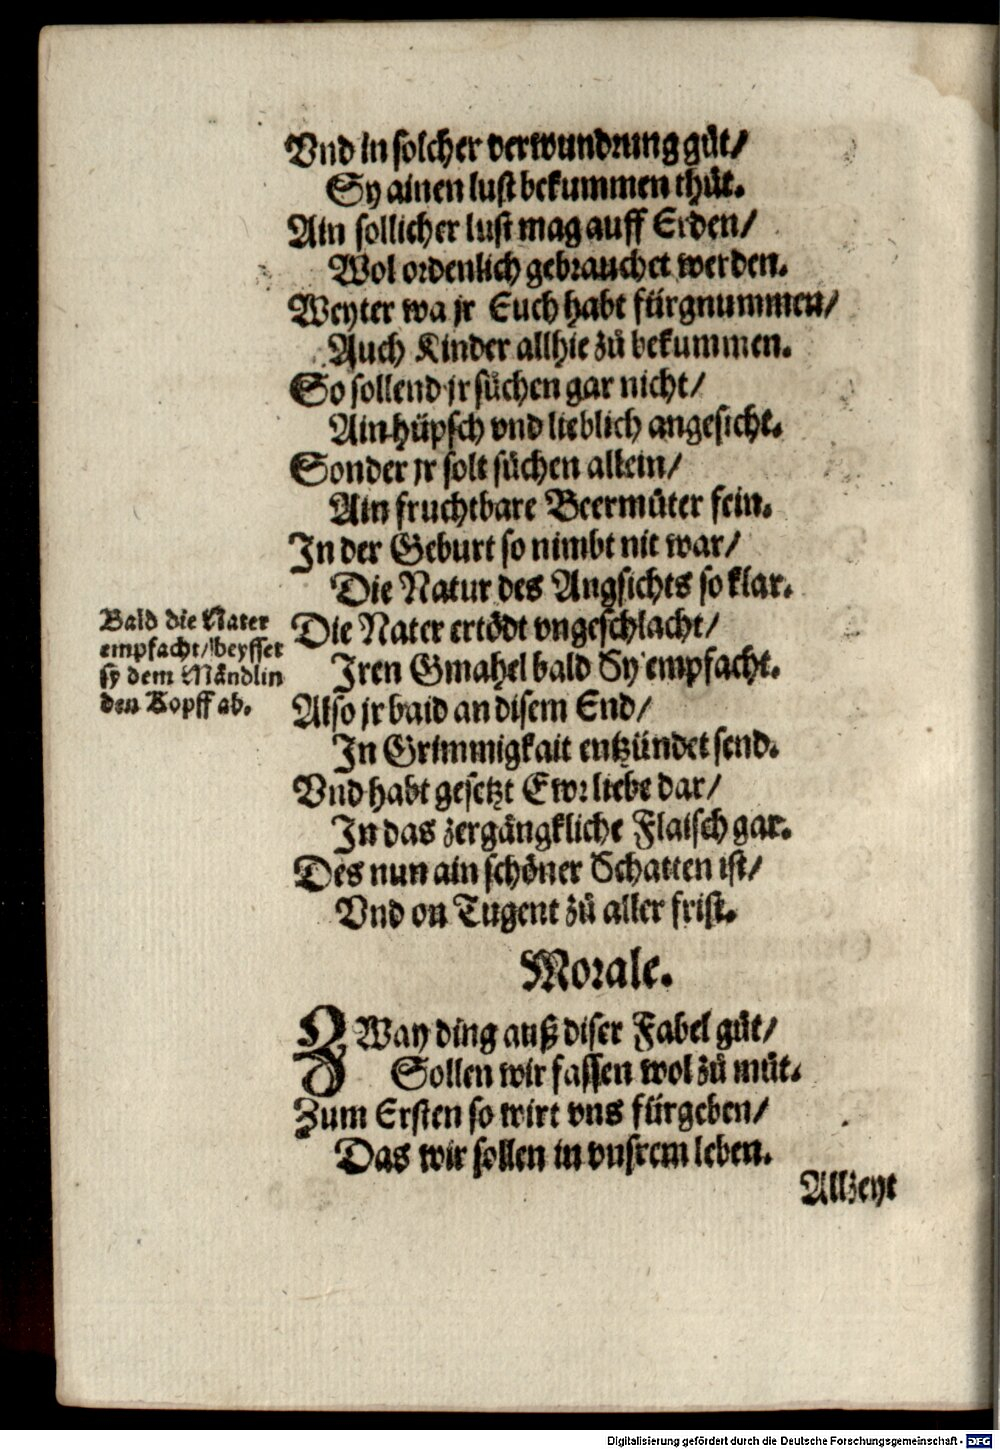 Vnd in solcher verwundrung gůt/
Sy ainen lust bekummen thůt.
Ain sollicher lust mag auff Erden/
Wol ordenlich gebrauchet werden.
Weyter wa jr Euch habt fürgnummen/
Auch Kinder allhie zů bekummen.
So sollend jr sůchen gar nicht/
Ain hüpsch vnd lieblich angesicht.
Sonder jr solt sůchen allein/
Ain fruchtbare Beermůter fein.
In der Geburt so nimbt nit war/
Die Natur des Angsichts so klar.
Bald die Nater
empfacht/beysset
sy dem Mändlin
den Kopff ab.
Die Nater ertödt vngeschlacht/
Iren Gmahel bald Sy empfacht.
Also jr baid an disem End/
In Grimmigkait entzündet send.
Vnd habt gesetzt Ewr liebe dar/
In das zergängkliche Flaisch gar.
Des nun ain schöner Schatten ist/
Vnd on Tugent zů aller frist.
Morale.
ZWay ding auß diser Fabel gůt/
Sollen wir fassen wol zů můt.
Zum Ersten so wirt vns fürgeben/
Das wir sollen in vnsrem leben.
Allzeyt
Digitalisierung gefördert durch die Deutsche Forschungsgemeinschaft - DFG